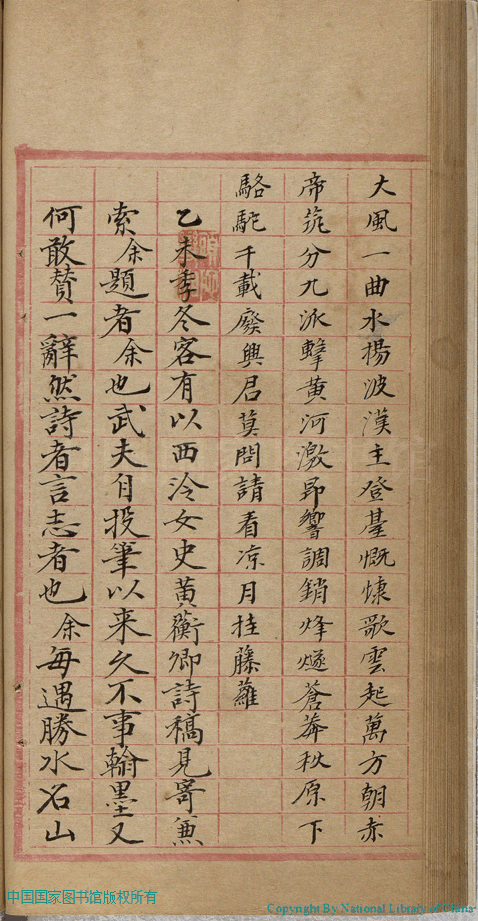 大風一曲水揚波漢主登臺慨慷歌雲起萬方朝赤
帝筑分九派擊黃河激昂響調銷烽燧蒼莽秋原下
駱駝千載廢興君莫問請看凉月挂藤蘿
乙未季冬客有以西泠女史黃蘅卿詩稿見寄兼
索余題者余也武夫自投筆以来久不事翰墨又
何敢贊一辭然詩者言志者也余每遇勝水名山
中国国家图书馆版权所有
Copyright By National Library of China